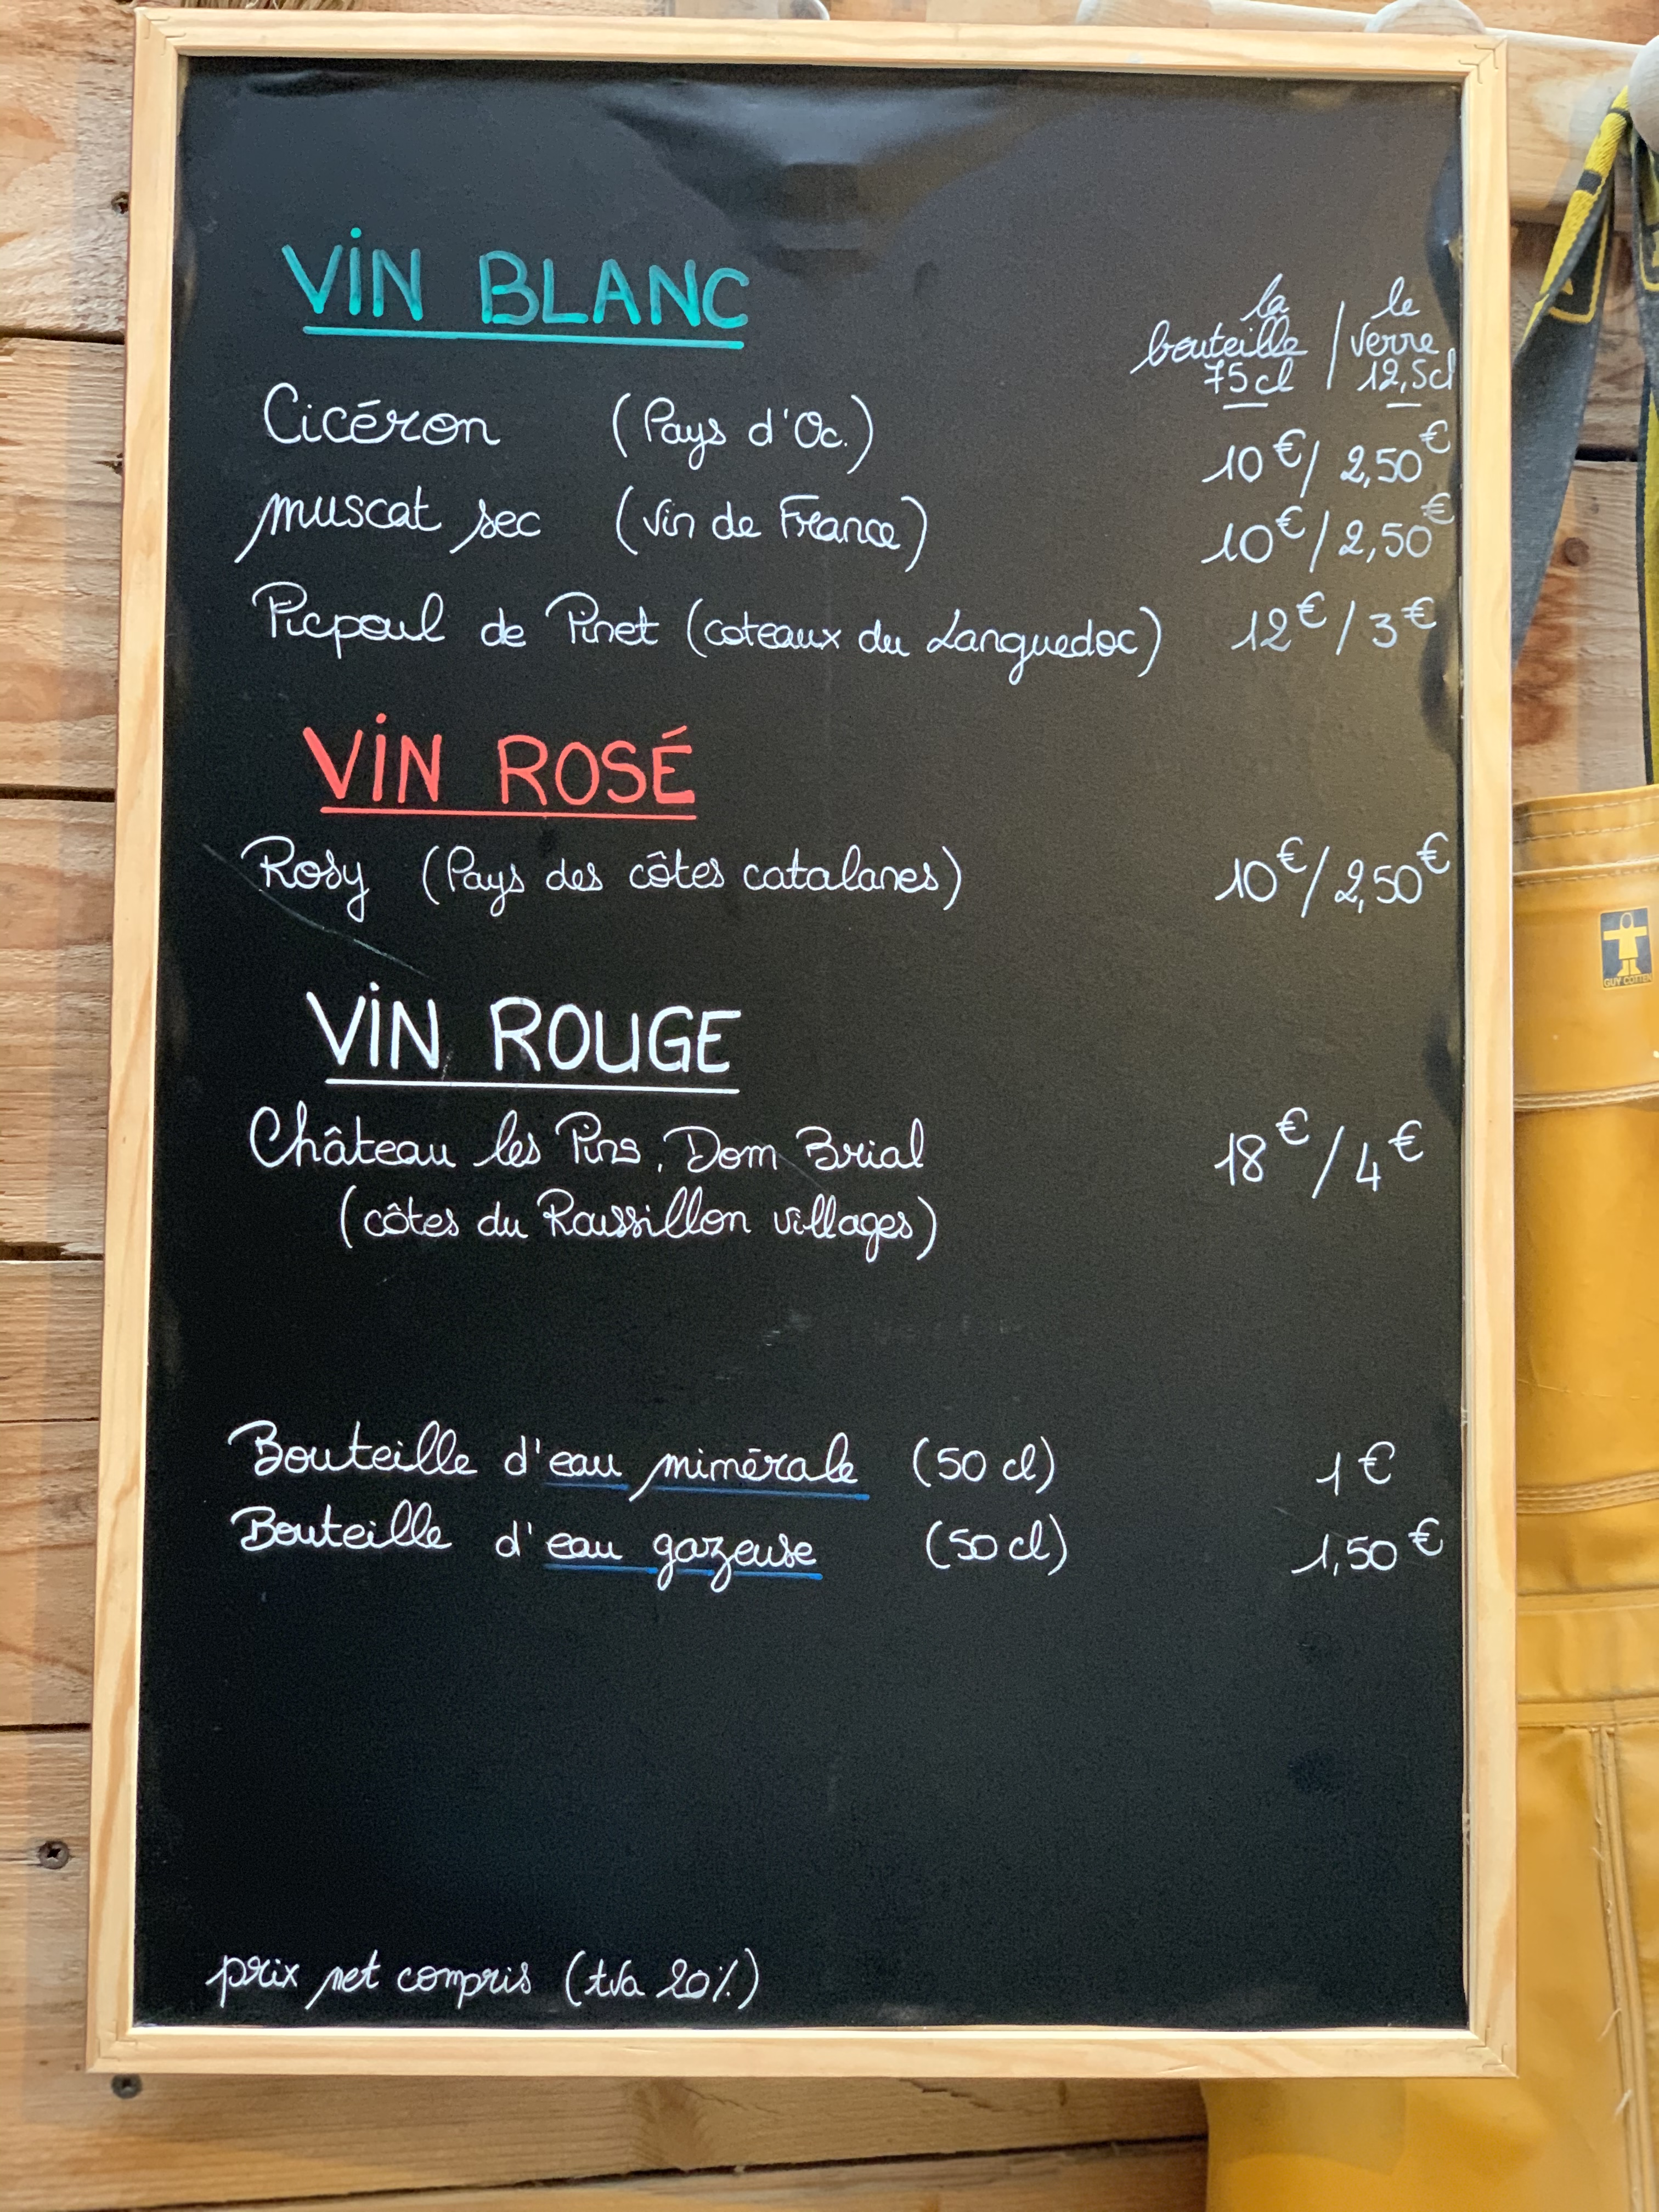 VIN BLANC
la bouteille 75cl / le verre 12,5cl
Cicéron (Pays d'Oc.) 10€/ 2,50€
muscat sec (vin de France) 10€/2,50€
Picpoul de Pinet (coteaux du Languedoc) 12€/3€
VIN ROSÉ
Rosy (Pays des côtes catalanes) 10€/2,50€
VIN ROUGE
Château les Pins, Dom Brial 18€/4€
(côtes du Roussillon villages)
Bouteille d'eau minérale (50 cl) 1€
Bouteille d'eau gazeuse (50 cl) 1,50€
prix net compris (tva 20%)
GUY COTTEN